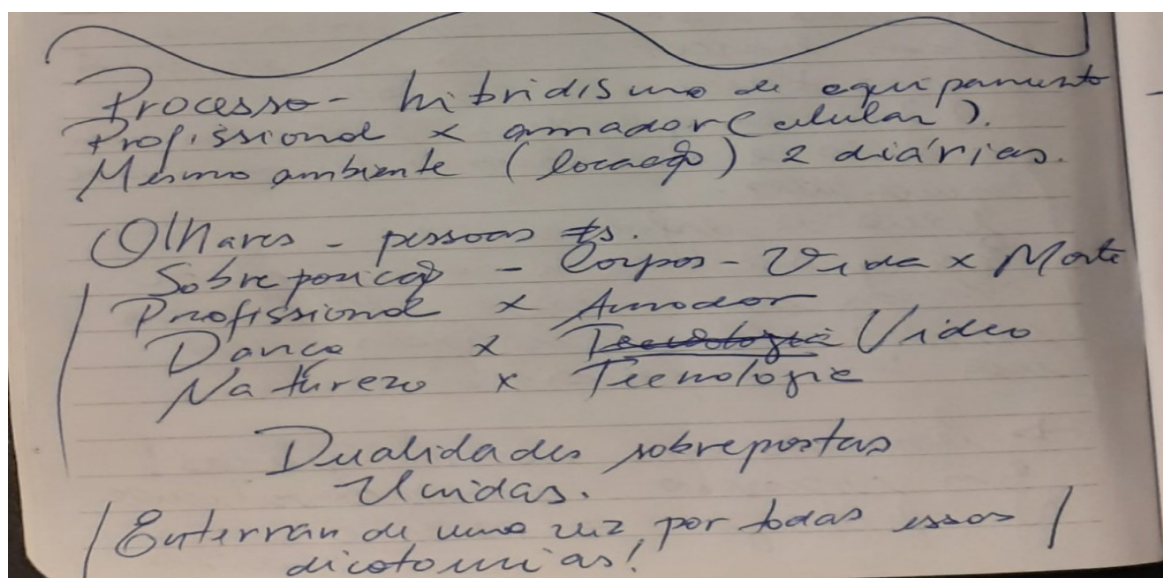 Processo - hibridismo de equipamento
Profissional x amador (celular).
Mesmo ambiente (locação) 2 diárias.
Olhares - pessoas ≠s.
Sobreposição - Corpos - Vida x Morte
Profissional x Amador
Dança x Tecnologia Vídeo
Natureza x Tecnologia
Dualidades sobrepostas
Unidas.
Enterrar de uma vez por todas essas
dicotomias!